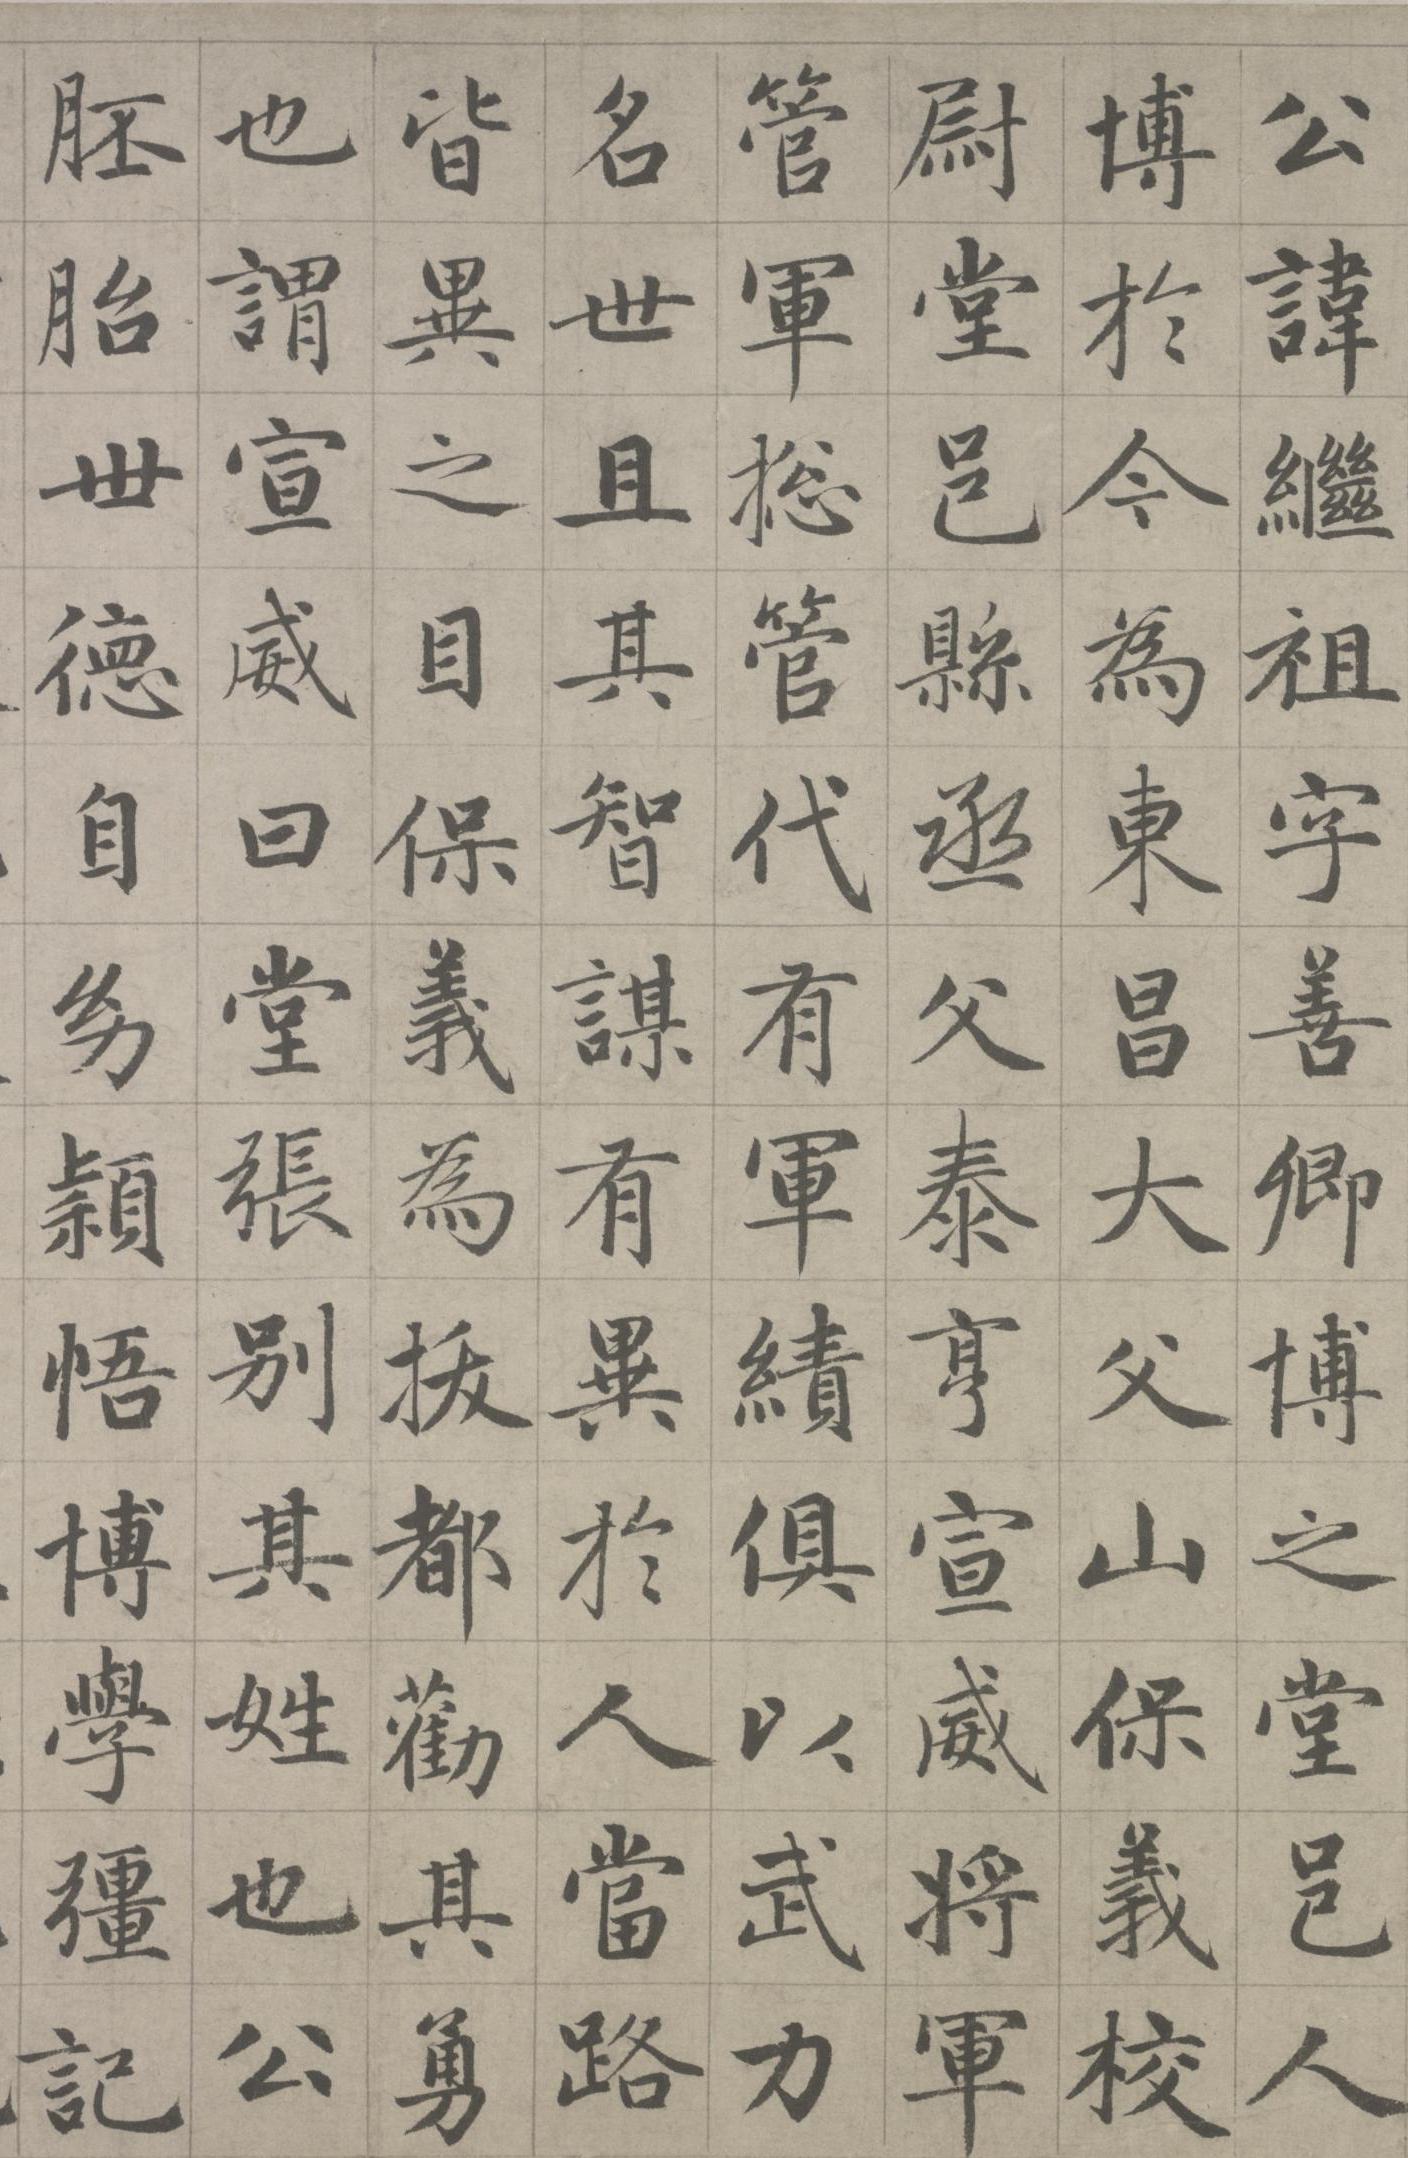 公諱繼祖字善卿博之堂邑人
博於今為東昌大父山保義校
尉堂邑縣丞父泰亨宣威將軍
管軍揔管代有軍績俱以武力
名世且其智謀有異於人當路
皆異之目保義為拔都勸其勇
也謂宣威曰堂張別其姓也公
胚胎世德自幼穎悟博學彊記